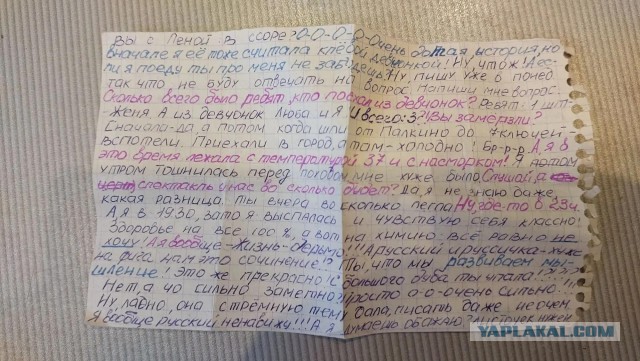 Вы с Леной в ссоре? О-О-О-О-Очень долгая история, но
вначале я её тоже считала клёвой девчонкой! Ну, что ж! А ес-
ли я поеду ты про меня не забудешь? Ну, пишу уже о поезд
так что не буду отвечать на вопрос. Напиши мне вопрос.
Сколько всего было ребят, кто поехал из девчонок? Ребят: 1 шт-
Женя. А из девчонок Люба и Я. И всего: 3? Вы замёрзли?
Сначала-да, а потом когда шли от Палкино до 7ключей-
вспотели. Приехали в город, а там-холодно! Бр-р-р. А я в
это время лежала с температурой 37 и с насморком!!! А потом
утром тошнилась перед походом мне хуже было. Слушай, а
спектакль у нас во сколько будет? Да, я не знаю даже
какая разница. Ты вчера во сколько легла? Ну, где-то в 23ч.
А я в 1930, зато я выспалась и чувствую себя классно!
Здоровье на все 100%, а вот на химию. Всё равно не
хочу! А я вообще-Жизнь-дерьмо!!! А русский и руссичка-хуже
на фига нам это сочинение!? Ты, что мы развиваем мы-
шление! Это же прекрасно! С большого дуба ты упала!?!?!?
Нет, а чо сильно заметно? Просто а-о-очень сильно!!!
Ну ладно, она стрёмную тему дала, писать даже не о чем.
Я вообще русский ненавижу!!! А я обожаю?
YAPLAKAL.COM